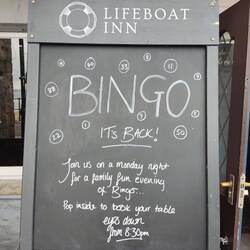 LIFEBOAT
INN
BINGO
IT'S BACK!
Join us on a monday night
for a family fun evening
of Bingo...
Pop inside to book your table
eyes down
from 8.30pm